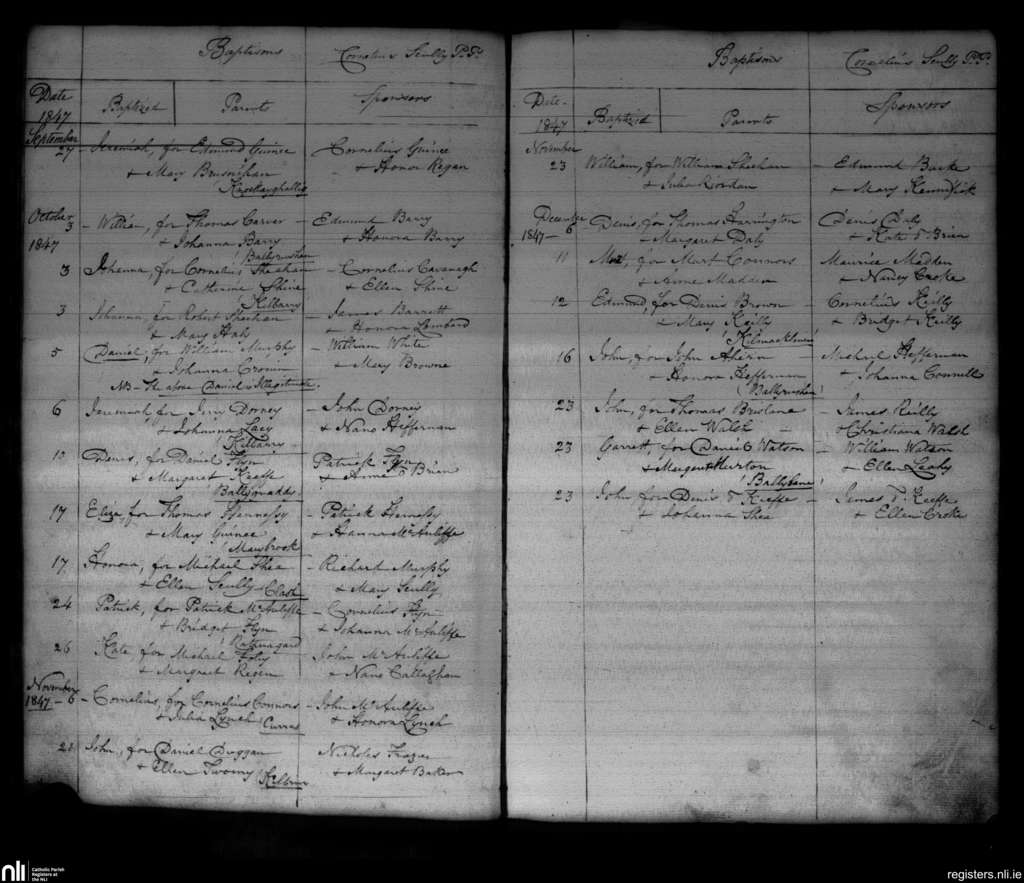 Baptisms Cornelius Scully P.P.
Date
1847 Baptized Parents Sponsors
September
27 Jeremiah, for Edmund Guinee Cornelius Guinee
+ Mary Brusnihan + Honor Regan
October
3 - William, for Thomas Carver - Edmund Barry
1847 + Johanna Barry + Honora Barry
3 Johanna, for Cornelius Sheehan - Cornelius Cavanagh
+ Catherine Shine + Ellen Shine
Kilbarry
3 Johanna, for Robert Sheehan - James Barrett
+ Mary + Honora Lombard
5 Daniel, for William Murphy - William White
+ Johanna Cronin + Mary Browne
NB - The above Daniel is Illegitimate.
6 Jeremiah, for Jerry Dorney - John Dorney
+ Johanna Lacy + Nano Heffernan
Kilbarry
10 Denis, for Daniel Flyn Patrick Flyn
+ Margaret Keeffe + Anne O Brian
17 Eliza, for Thomas Hennessy - Patrick Hennessy
+ Mary Guinee + Hanna McAuliffe
Marybrook
17 Honora, for Michael Shea - Richard Murphy
+ Ellen Scully Clash + Mary Scully
24 Patrick, for Patrick McAuliffe - Cornelius Flyn
+ Bridget Flyn + Johanna McAuliffe
26 Kate, for Michael Foley John McAuliffe
+ Margaret Regan + Nano Callaghan
November
1847 - 6 - Cornelius, for Cornelius Connors - John McAuliffe
+ Julia Lynch Curras + Honora Lynch
John, for Daniel Duggan Nicholas Frazer
+ Ellen Twomy + Margaret Baker
Baptisms Cornelius Scully P.P.
Date
1847 Baptized Parents Sponsors
November
23 William, for William Sheehan - Edmund Burke
+ Julia Riordan + Mary
December
1847 - 6 - Denis, for Thomas Harrington Denis Daly
+ Margaret Daly + Kate O Brian
11 for Mort Connors Maurice Madden
+ Anne Madden + Nancy Croke
12 Edmond, for Denis Brown - Cornelius Reilly
+ Mary Reilly + Bridget Reilly
16 John, for John Ahern - Michael Heffernan
+ Honora Heffernan + Johanna Connell
23 John, for Thomas Brislane - James Reilly
+ Ellen Walsh - + Christiana Walsh
23 Garrett, for Daniel Watson - William Watson
+ Margaret + Ellen Leahy
23 John for Denis O Keeffe - James O Keeffe
+ Johanna Shea + Ellen Croke
nli
Catholic Parish
Registers at
the NLI
registers.nli.ie